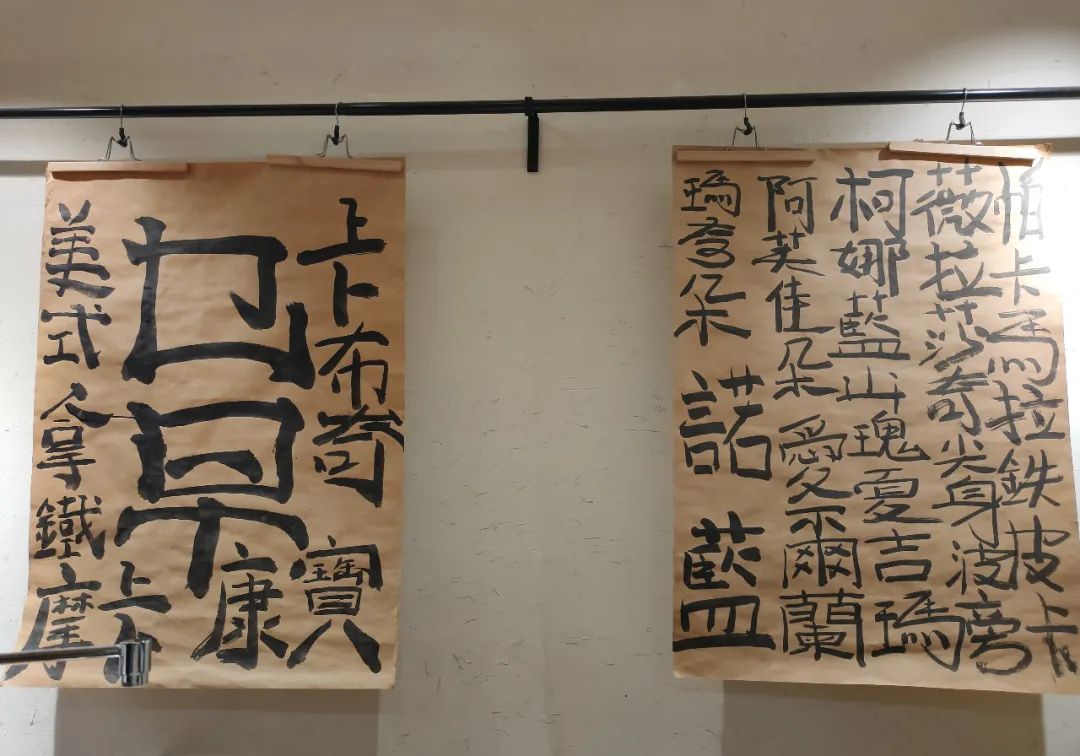 帕卡馬拉鉄皮卡
薇拉莎奇尖身波旁
柯娜藍山瑰夏吉瑪
阿芙佳朵愛爾蘭
瑪奇朵 諾 藍
卡布奇 寶
康
美式拿鐵摩卡